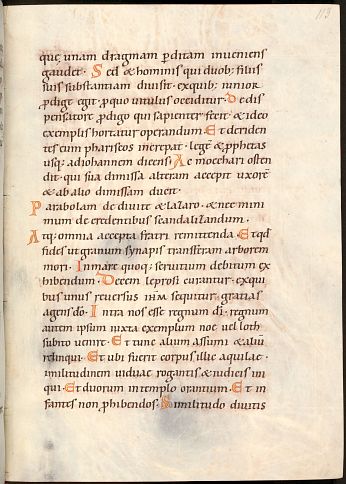 113
quę unam dragmam perditam inveniens
gaudet. Sed & hominis qui duob; filiis
suis substantiam divisit. ex quib; iunior
prodige egit. pro quo vitulus occiditur. De dis
pensatore prodigo qui sapienter fecit. & ideo
exemplis hortatur operandum. Et deriden
tes eum phariseos increpat. lege & prophetas
usq; ad iohannem dicens. Ac moechari osten
dit. qui sua dimissa alteram accepit uxorē
& ab alio dimissam ducit.
Parabolam de divite & lazaro. & nec mini
mum de credentibus scandalizandum.
Atq; omnia accepta fratri remittenda. Et qđ
fides ut granum synapis transferam arborem
mori. In mare quoq; servitium debitum ex
hibendum. Decem leprosi curantur. ex qui
bus unus reversus ihm sequitur gratias
agens dō. Intra nos esse regnum dī. regnum
autem ipsum iuxta exemplum noe vel loth
subito venire. Et tunc alium assumi & aliū
relinqui. Et ubi fuerit corpus illuc aquilae.
imilitudinem viduae rogantis & iudicis ini
qui. Et duorum in templo orantium. Et in
fantes non prohibendos. Similitudo divitis